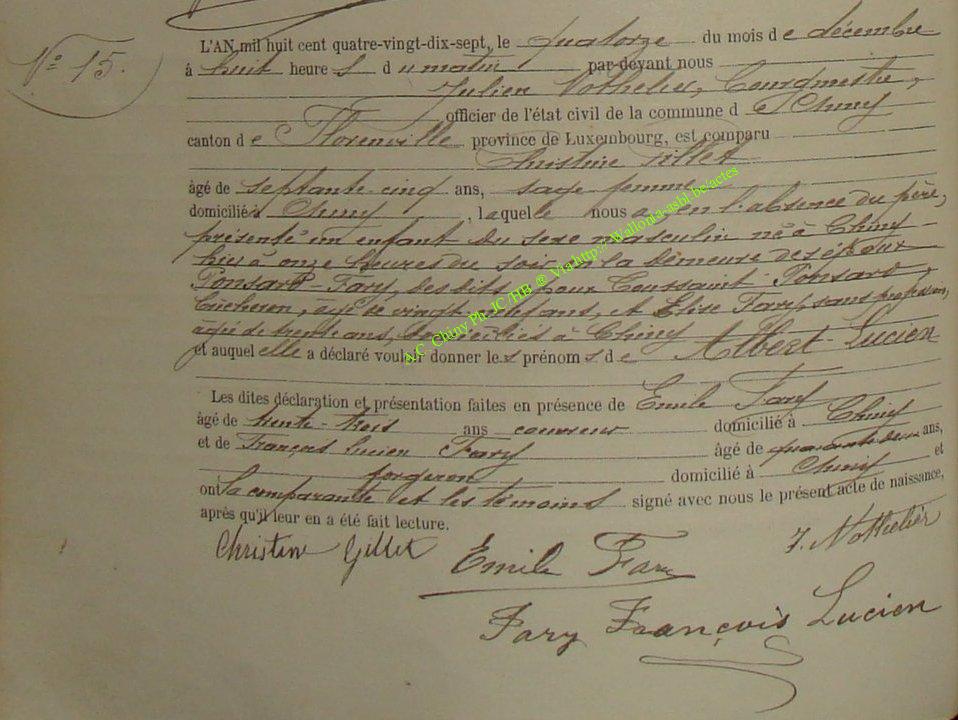 N° 15.
L'AN mil huit cent quatre-vingt-dix-sept, le quatorze du mois de décembre
á huit heures du matin par-devant nous
Julien Nothelier, Bourgmestre,
officier de l'état civil de la commune de Chiny
canton de Florenville province de Luxembourg, est comparu
Christine Gillet
âgé de septante-cinq ans, sage femme
domicilié à Chiny, laquelle nous a en l'absence du père,
présenté un enfant du sexe masculin né à Chiny
hier à onze heures du soir, la demeure des époux
Ponsard-Fary, des dits époux Toussaint Ponsard,
bûcheron, âgé de vingt ans, et Elise Fary, sans profession,
agée de trente ans, domiciliés à Chiny
et auquel elle a déclaré vouloir donner les prénoms de Albert-Lucien
Les dites déclaration et présentation faites en présence de Emile Fary
âgé de trente-trois ans couvreur domicilié à Chiny
et de François Lucien Fary âgé de quarante deux ans,
forgeron domicilié à Chiny et
ont la comparante et les témoins signé avec nous le présent acte de naissance,
après qu'il leur en a été fait lecture.
Christine Gillet
Emile Fary
J. Nothelier
Fary François Lucien
A.C Chiny Ph JC/HB @ Via http://Wallonia-asbl.be/actes